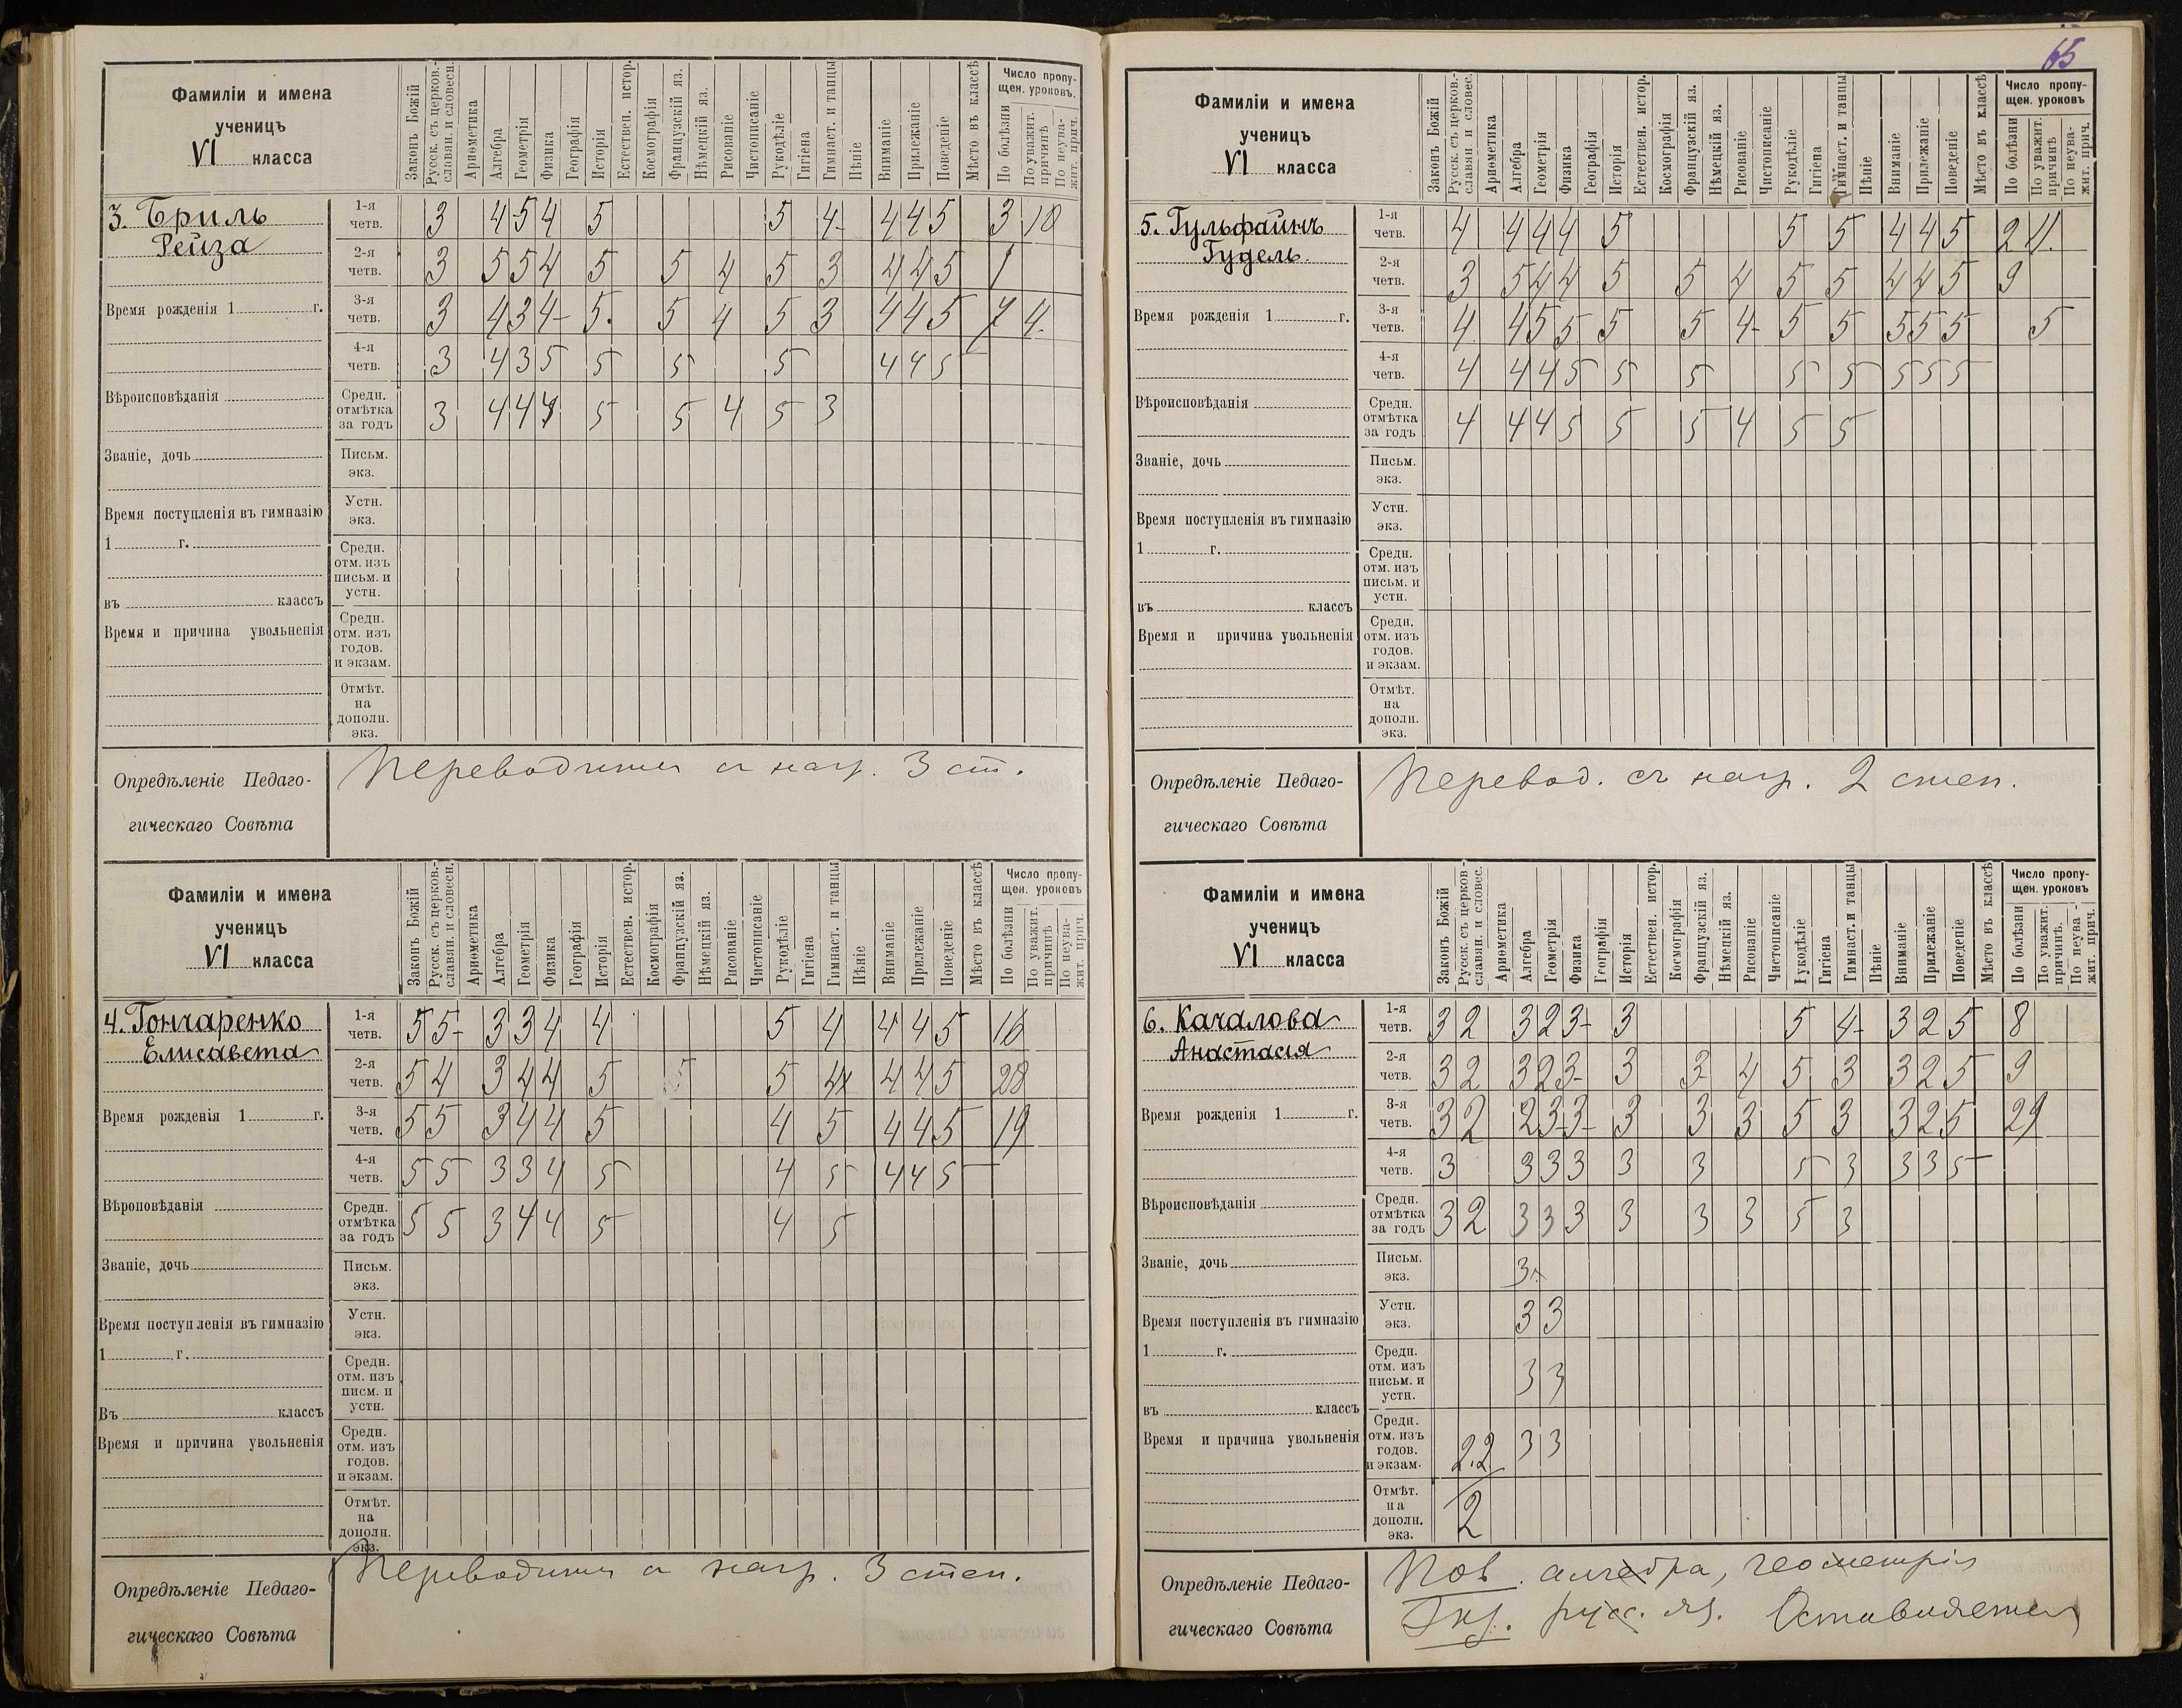 65
Фамиліи и имена
ученицъ
VI класса
Законъ Божій
Русск. съ церков.-
славян. и словесн.
Ариѳметика
Алгебра
Геометрія
Физика
Географія
Исторія
Естествен. истор.
Космографія
Французскій яз.
Нѣмецкій яз.
Рисованіе
Чистописаніе
Рукодѣліе
Гигіена
Гимнаст. и танцы
Пѣніе
Вниманіе
Прилежаніе
Поведеніе
Мѣсто въ классѣ
Число пропу-
щен. уроковъ.
По болѣзни
По уважит.
причинѣ
По неува-
жит. прич.
3. Бриль
Рейза
Время рожденія 1 г.
Вѣроисповѣданія
Званіе, дочь
Время поступленія въ гимназію
1 г.
въ классъ
Время и причина увольненія
1-я четв. 3 4 5 4 5 5 4 4 4 5 3 10
2-я четв. 3 5 5 4 5 5 4 5 3 4 4 5 1
3-я четв. 3 4 3 4 5. 5 4 5 3 4 4 5 7 4.
4-я четв. 3 4 3 5 5 5 5 4 4 5
Средн. отмѣтка за годъ 3 4 4 4 5 5 4 5 3
Письм. экз.
Устн. экз.
Средн. отм. изъ письм. и устн.
Средн. отм. изъ годов. и экзам.
Отмѣт. на дополн. экз.
Опредѣленіе Педаго-
гическаго Совѣта
Переводится съ нагр. 3 ст.
Фамиліи и имена
ученицъ
VI класса
Законъ Божій
Русск. съ церков.-
славян. и словесн.
Ариѳметика
Алгебра
Геометрія
Физика
Географія
Исторія
Естествен. истор.
Космографія
Французскій яз.
Нѣмецкій яз.
Рисованіе
Чистописаніе
Рукодѣліе
Гигіена
Гимнаст. и танцы
Пѣніе
Вниманіе
Прилежаніе
Поведеніе
Мѣсто въ классѣ
Число пропу-
щен. уроковъ
По болѣзни
По уважит.
причинѣ
По неува-
жит. прич.
4. Гончаренко
Елисавета
Время рожденія 1 г.
Вѣроповѣданія
Званіе, дочь
Время поступленія въ гимназію
1 г.
Въ классъ
Время и причина увольненія
1-я четв. 5 5 3 3 4 4 5 4 4 4 5 16
2-я четв. 5 4 3 4 4 5 5 4 4 4 5 28
3-я четв. 5 5 3 4 4 5 4 5 4 4 5 19
4-я четв. 5 5 3 3 4 5 4 5 4 4 5
Средн. отмѣтка за годъ 5 5 3 4 4 5 4 5
Письм. экз.
Устн. экз.
Средн. отм. изъ писм. и устн.
Средн. отм. изъ годов. и экзам.
Отмѣт. на дополн. экз.
Опредѣленіе Педаго-
гическаго Совѣта
Переводится съ нагр. 3 степ.
Фамиліи и имена
ученицъ
VI класса
Законъ Божій
Русск. съ церков.-
славян и словес.
Ариѳметика
Алгебра
Геометрія
Физика
Географія
Исторія
Естествен. истор.
Космографія
Французскій яз.
Нѣмецкій яз.
Рисованіе
Чистописаніе
Рукодѣліе
Гигіена
Гимнаст. и танцы
Пѣніе
Вниманіе
Прилежаніе
Поведеніе
Мѣсто въ классѣ
Число пропу-
щен. уроковъ
По болѣзни
По уважит.
причинѣ
По неува-
жит. прич.
5. Гульфайнъ
Гудель.
Время рожденія 1 г.
Вѣроисповѣданія
Званіе, дочь
Время поступленія въ гимназію
1 г.
въ классъ
Время и причина увольненія
1-я четв. 4 4 4 4 5 5 5 4 4 5 2 4.
2-я четв. 3 5 4 4 5 5 4 5 5 4 4 5 9
3-я четв. 4 4 5 5 5 5 4 5 5 5 5 5 5
4-я четв. 4 4 4 5 5 5 5 5 5 5 5
Средн. отмѣтка за годъ 4 4 4 5 5 5 4 5 5
Письм. экз.
Устн. экз.
Средн. отм. изъ письм. и устн.
Средн. отм. изъ годов. и экзам.
Отмѣт. на дополн. экз.
Опредѣленіе Педаго-
гическаго Совѣта
Перевод. съ нагр. 2 степ.
Фамиліи и имена
ученицъ
VI класса
Законъ Божій
Русск. съ церков-
славян. и словес.
Ариѳметика
Алгебра
Геометрія
Физика
Географія
Исторія
Естествен. истор.
Космографія
Французскій яз.
Нѣмецкій яз.
Рисованіе
Чистописаніе
Рукодѣліе
Гигіена
Гимнаст. и танцы
Пѣніе
Вниманіе
Прилежаніе
Поведеніе
Мѣсто въ классѣ
Число пропу-
щен. уроковъ
По болѣзни
По уважит.
причинѣ.
По неува-
жит. прич.
6. Качалова
Анастасія
Время рожденія 1 г.
Вѣроисповѣданія
Званіе, дочь
Время поступленія въ гимназію
1 г.
въ классъ
Время и причина увольненія
1-я четв. 3 2 3 2 3- 3 5 4- 3 2 5 8
2-я четв. 3 2 3 2 3- 3 3 4 5 3 3 2 5 9
3-я четв. 3 2 2 3- 3- 3 3 3 5 3 3 2 5 29
4-я четв. 3 3 3 3 3 3 5 3 3 3 5
Средн. отмѣтка за годъ 3 2 3 3 3 3 3 3 5 3
Письм. экз. 3
Устн. экз. 3 3
Средн. отм. изъ письм. и устн. 3 3
Средн. отм. изъ годов. и экзам. 2.2 3 3
Отмѣт. на дополн. экз. 2
Опредѣленіе Педаго-
гическаго Совѣта
Пов. алгебра, геометрія
Экз. русс. яз. Оставляется